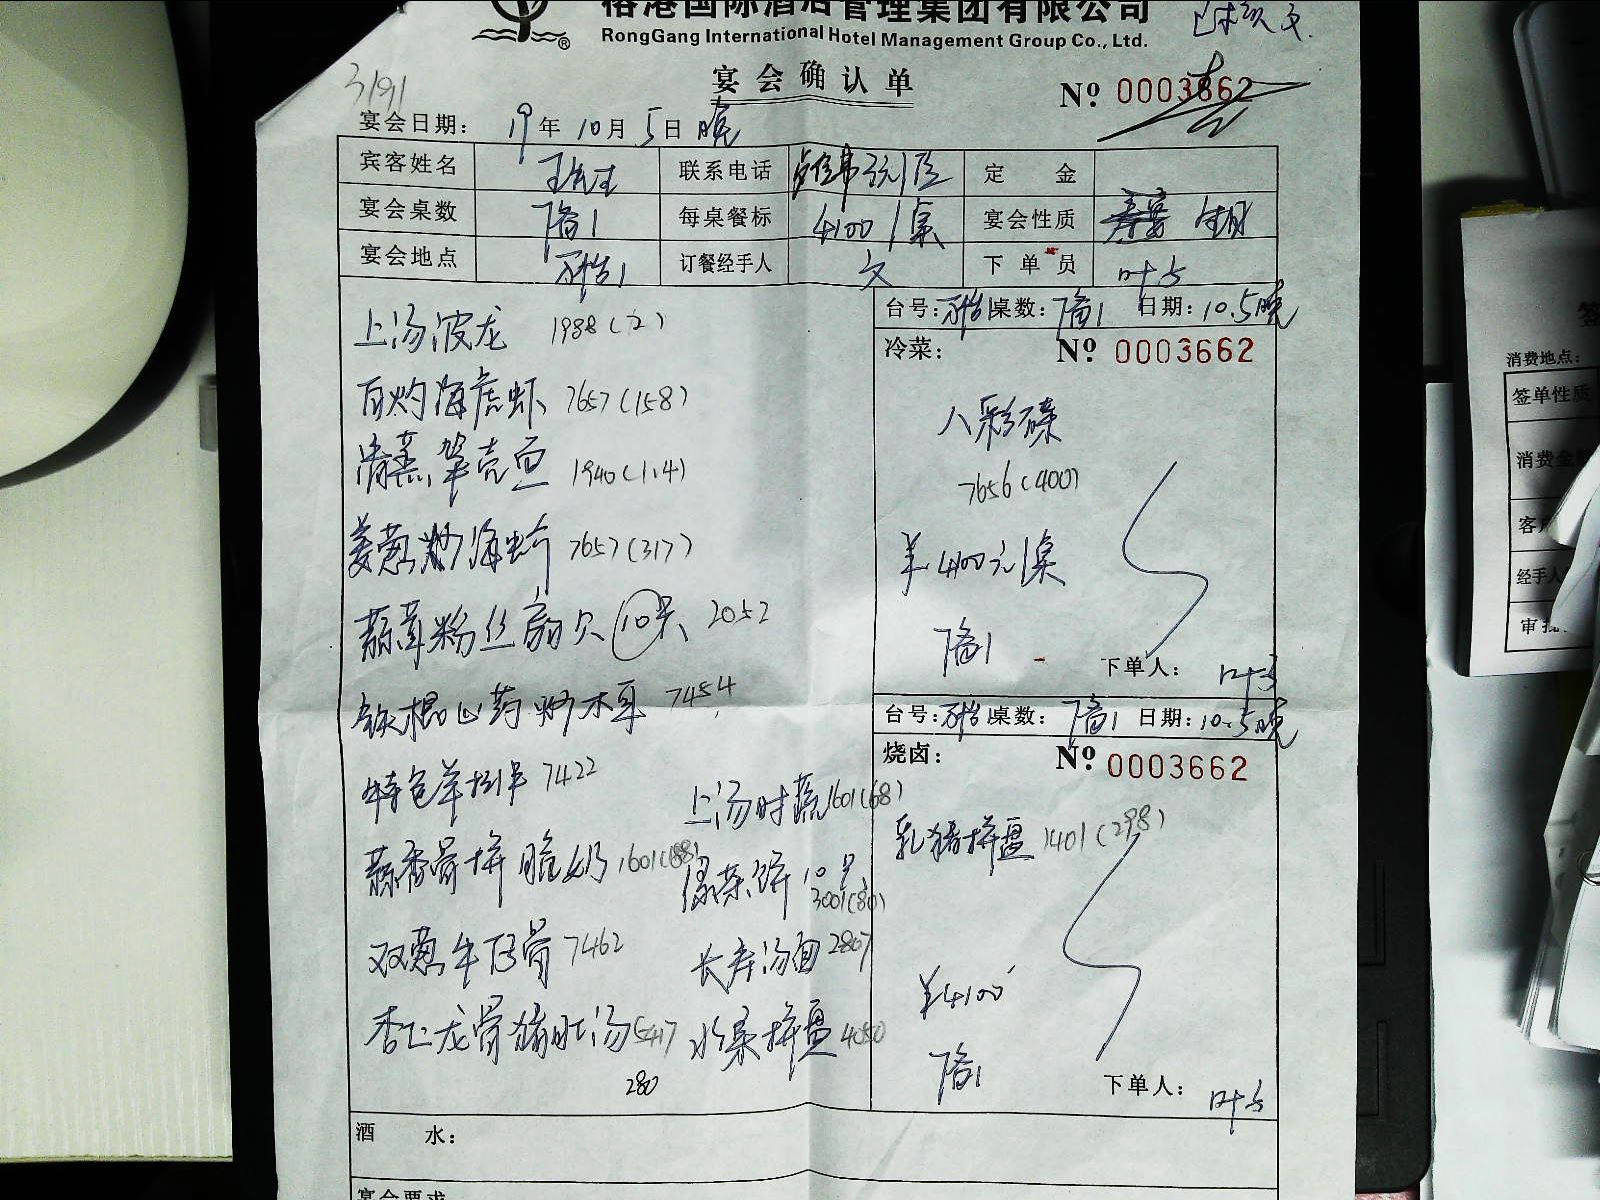 榕港国际酒店管理集团有限公司
RongGang International Hotel Management Group Co., Ltd.
宴会确认单
3191
№ 0003662
宴会日期： 19年 10月 5日 晚
宾客姓名 联系电话 定 金
宴会桌数 席1 每桌餐标 4100/桌 宴会性质 寿宴
宴会地点 订餐经手人 文 下单员 叶
上汤波龙 1988(2)
白灼海虎虾 7657(158)
清蒸笋壳鱼 1940(1.4)
姜葱炒海蚧 7657(317)
蒜茸粉丝扇贝 10只 2052
铁棍山药炒木耳 7454
特色羊 7422
蒜香骨拼脆奶 1601(188)
双葱牛仔骨 7462
杏仁龙骨猪肚汤 5417
280
上汤时蔬 1601(68)
菜饼 10只
3001(80)
长寿汤面 2807
水果拼盘 4050
台号： 桌数： 席1 日期：10.5晚
冷菜： № 0003662
八彩碟
7656(400)
¥4100元/桌
席1
下单人： 叶
台号： 桌数： 席1 日期：10.5晚
烧卤： № 0003662
乳猪拼盘 1401(298)
¥4100
席1
下单人： 叶
酒 水：
宴会要求
消费地点：
签单性质
消费金
客
经手人
审批